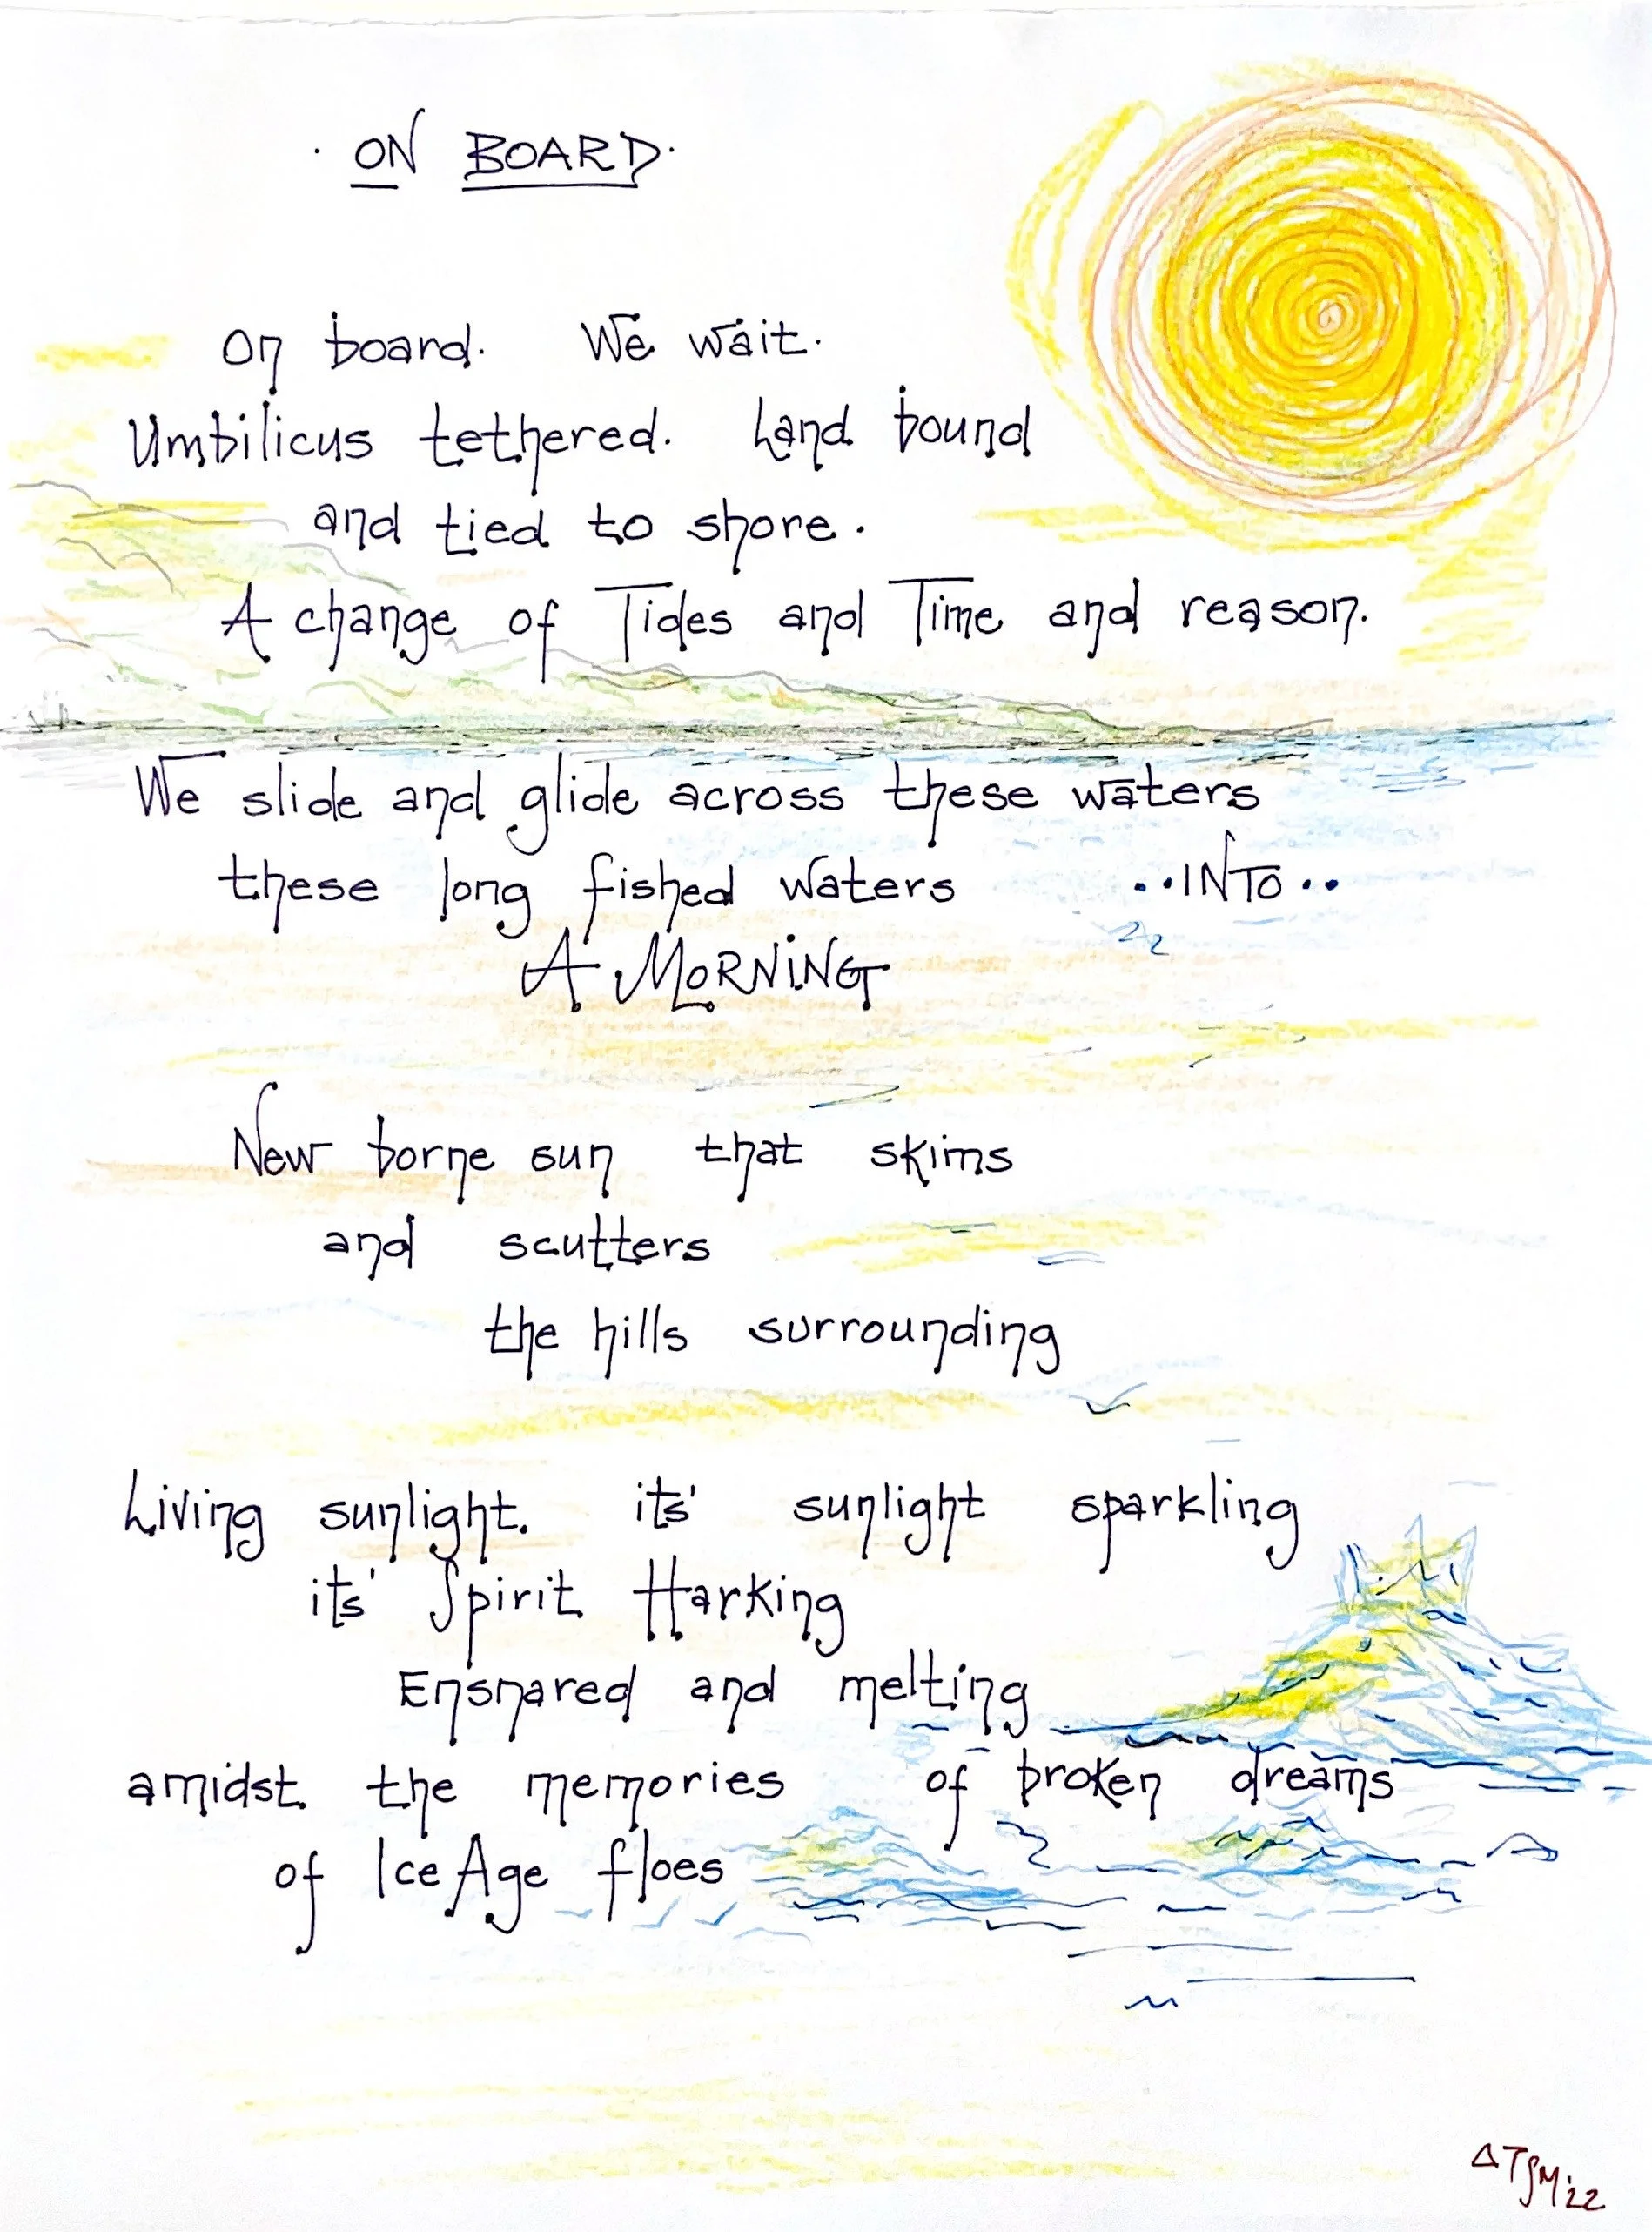 · ON BOARD ·
On board. We wait.
Umbilicus tethered. Land bound
and tied to shore.
A change of Tides and Time and reason.
We slide and glide across these waters
these long fished waters ..INTO..
A MORNING
New borne sun that skims
and scutters
the hills surrounding
Living sunlight. its' sunlight sparkling
its' Spirit Harking
Ensnared and melting
amidst the memories of broken dreams
of Ice Age floes